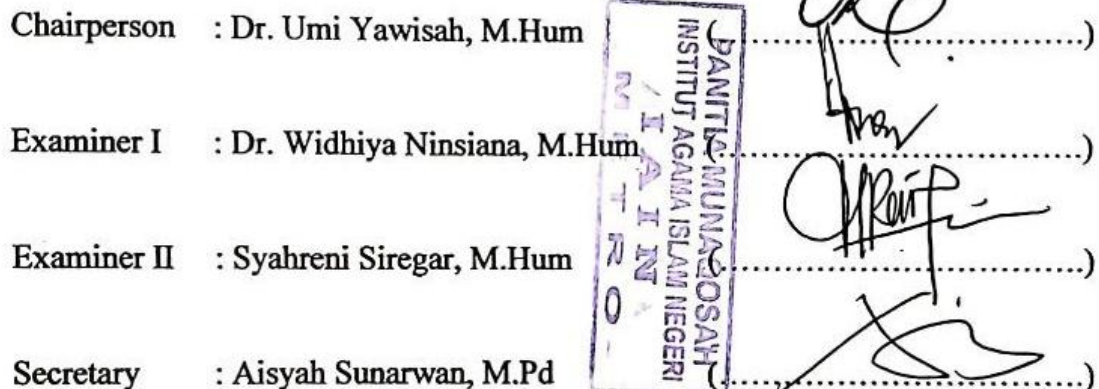 Chairperson : Dr. Umi Yawisah, M.Hum (..............................)
Examiner I : Dr. Widhiya Ninsiana, M.Hum (..............................)
Examiner II : Syahreni Siregar, M.Hum (..............................)
Secretary : Aisyah Sunarwan, M.Pd (..............................)
PANITIA MUNAQOSAH
INSTITUT AGAMA ISLAM NEGERI
IAIN
METRO